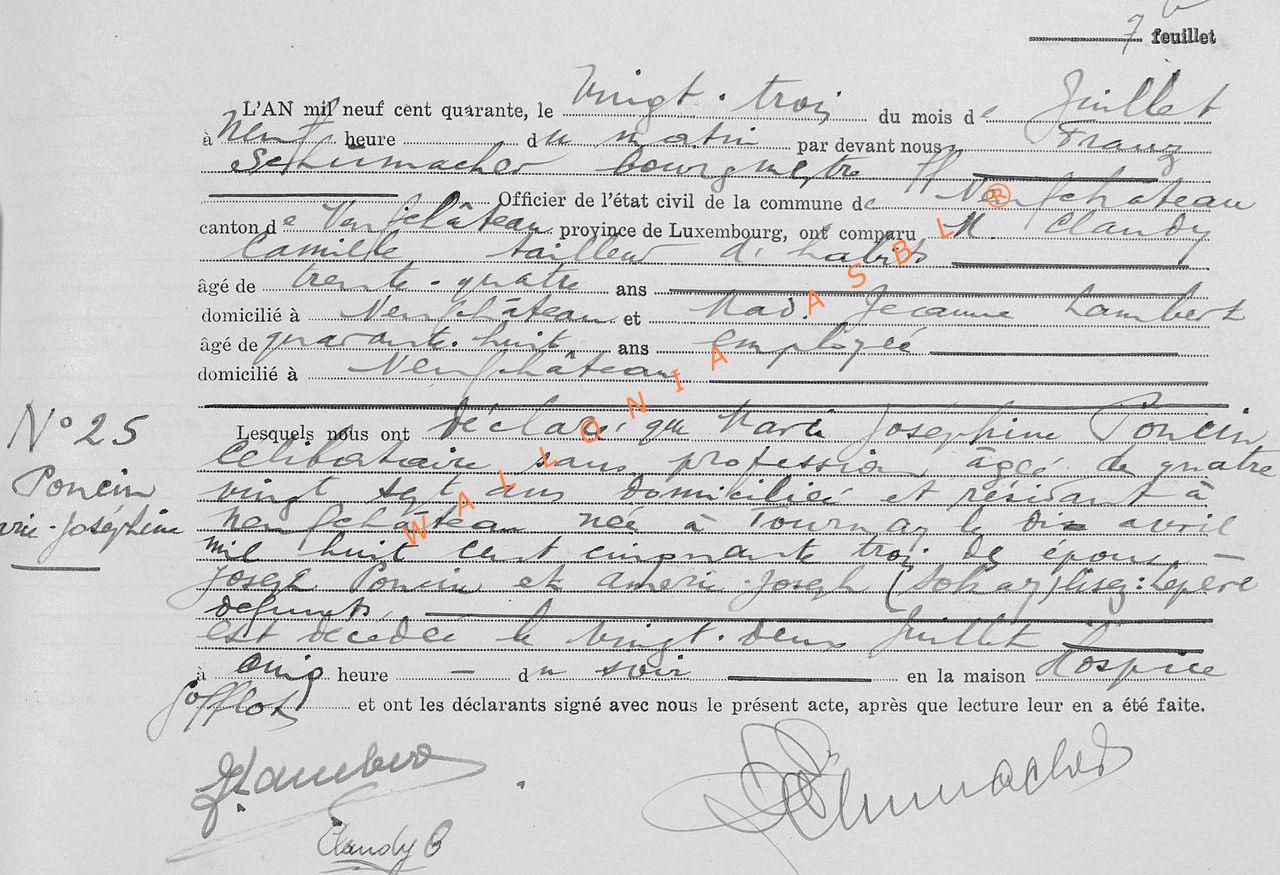 7e feuillet
L'AN mil neuf cent quarante, le Vingt-trois du mois de Juillet
à Neuf heure du matin par devant nous Franz
Schumacher bourgmestre ff
Officier de l'état civil de la commune de Neufchâteau
canton de Neufchâteau province de Luxembourg, ont comparu M. Claudy
Camille tailleur d'habits
âgé de trente-quatre ans
domicilié à Neufchâteau et Mad. Jeanne Lambert
âgé de quarante-huit ans employée
domicilié à Neufchâteau
N° 25
Poncin
Marie-Joséphine
Lesquels nous ont déclaré que Marie Joséphine Poncin
célibataire sans profession, âgée de quatre
vingt sept ans domiciliée et résidant à
Neufchâteau née à Tournay le dix avril
mil huit cent cinquante trois de époux
Joseph Poncin et Joseph ( ) lisez: Lepère
défunts.
est décédée le vingt-deux Juillet
à cinq heure du soir en la maison Hospice
et ont les déclarants signé avec nous le présent acte, après que lecture leur en a été faite.
JLambert
Schumacher
Claudy C
WALLONIA ASBL ®